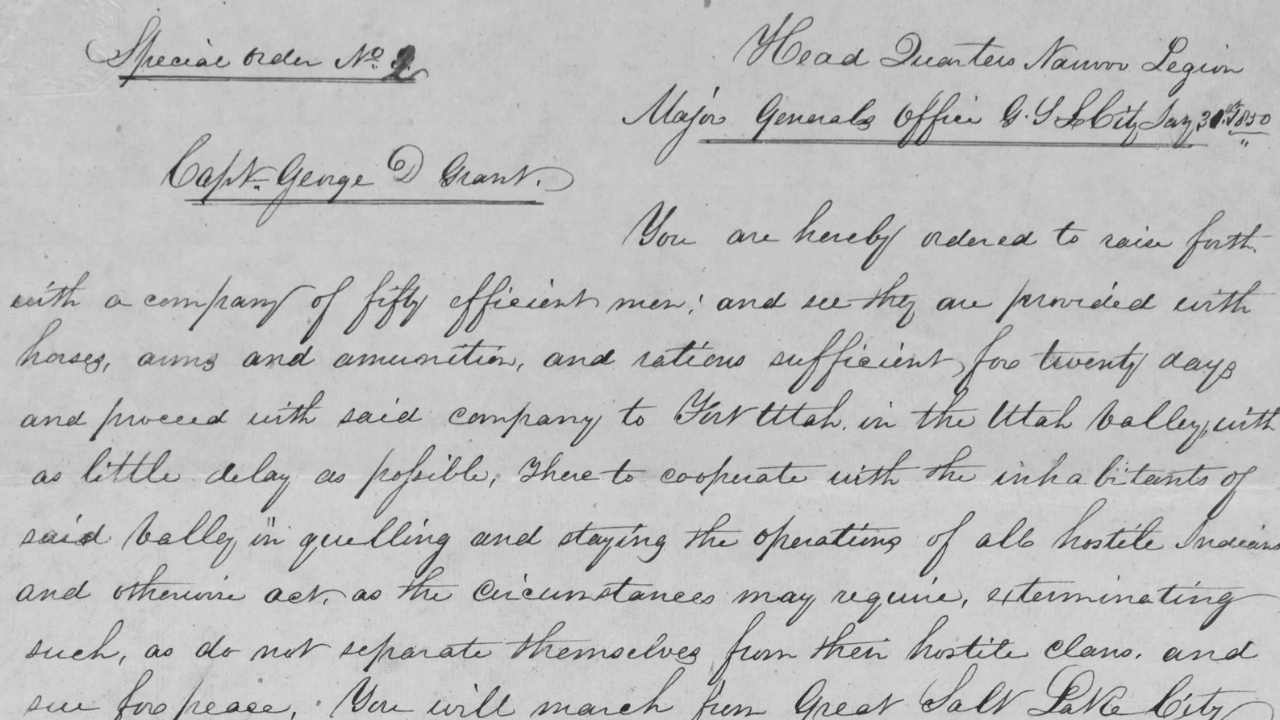 Special order No. 2
Head Quarters Nauvoo Legion
Major Generals Office G. S L City Jany 31st 1850
Capt. George D Grant.
You are hereby ordered to raise forth
with a company of fifty efficient men; and see they are provided with
horses, arms and amunition, and rations sufficient for twenty days
and proceed with said company to Fort Utah. in the Utah Valley, with
as little delay as possible, There to cooperate with the inhabitants of
said Valley in quelling and staying the operations of all hostile Indians
and otherwise act, as the circumstances may require, exterminating
such, as do not separate themselves from their hostile clans, and
sue for peace, You will march from Great Salt Lake City